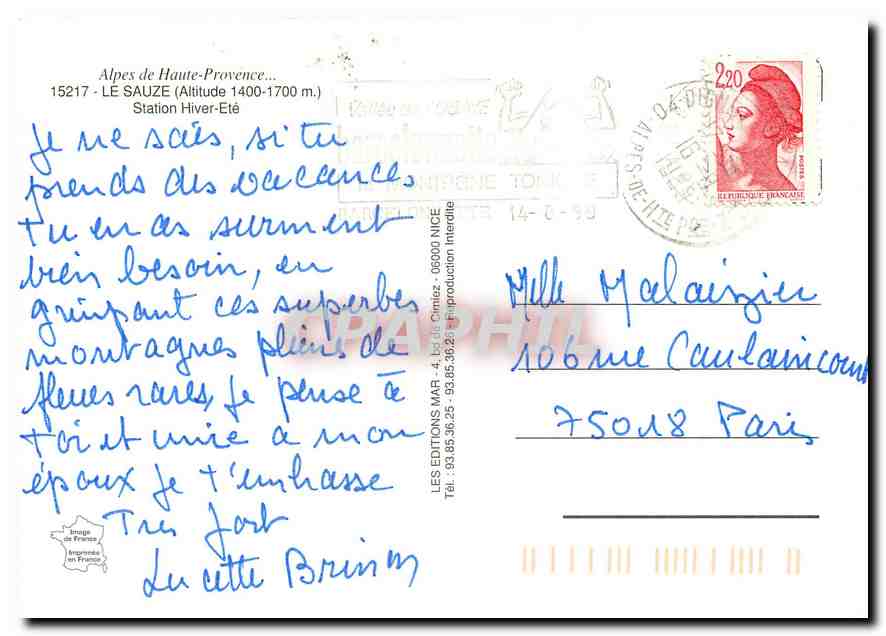 Alpes de Haute-Provence...
15217 - LE SAUZE (Altitude 1400-1700 m.)
Station Hiver-Eté
Je ne sais, si tu
prends des vacances
tu en as surment
bien besoin, en
grimpant ces superbes
montagnes pleins de
fleurs rares, je pense à
toi et unie a mon
époux je t'embrasse
Tres fort
Lucette
Image
de France
Imprimée
en France
LES EDITIONS MAR - 4, bd de Cimiez - 06000 NICE
Tél. : 93.85.36.25 - 93.85.36.26 - Reproduction Interdite
CPAPHIL
2,20
POSTES
REPUBLIQUE FRANÇAISE
Melle Malaizier
106 rue Caulaincourt
75018 Paris